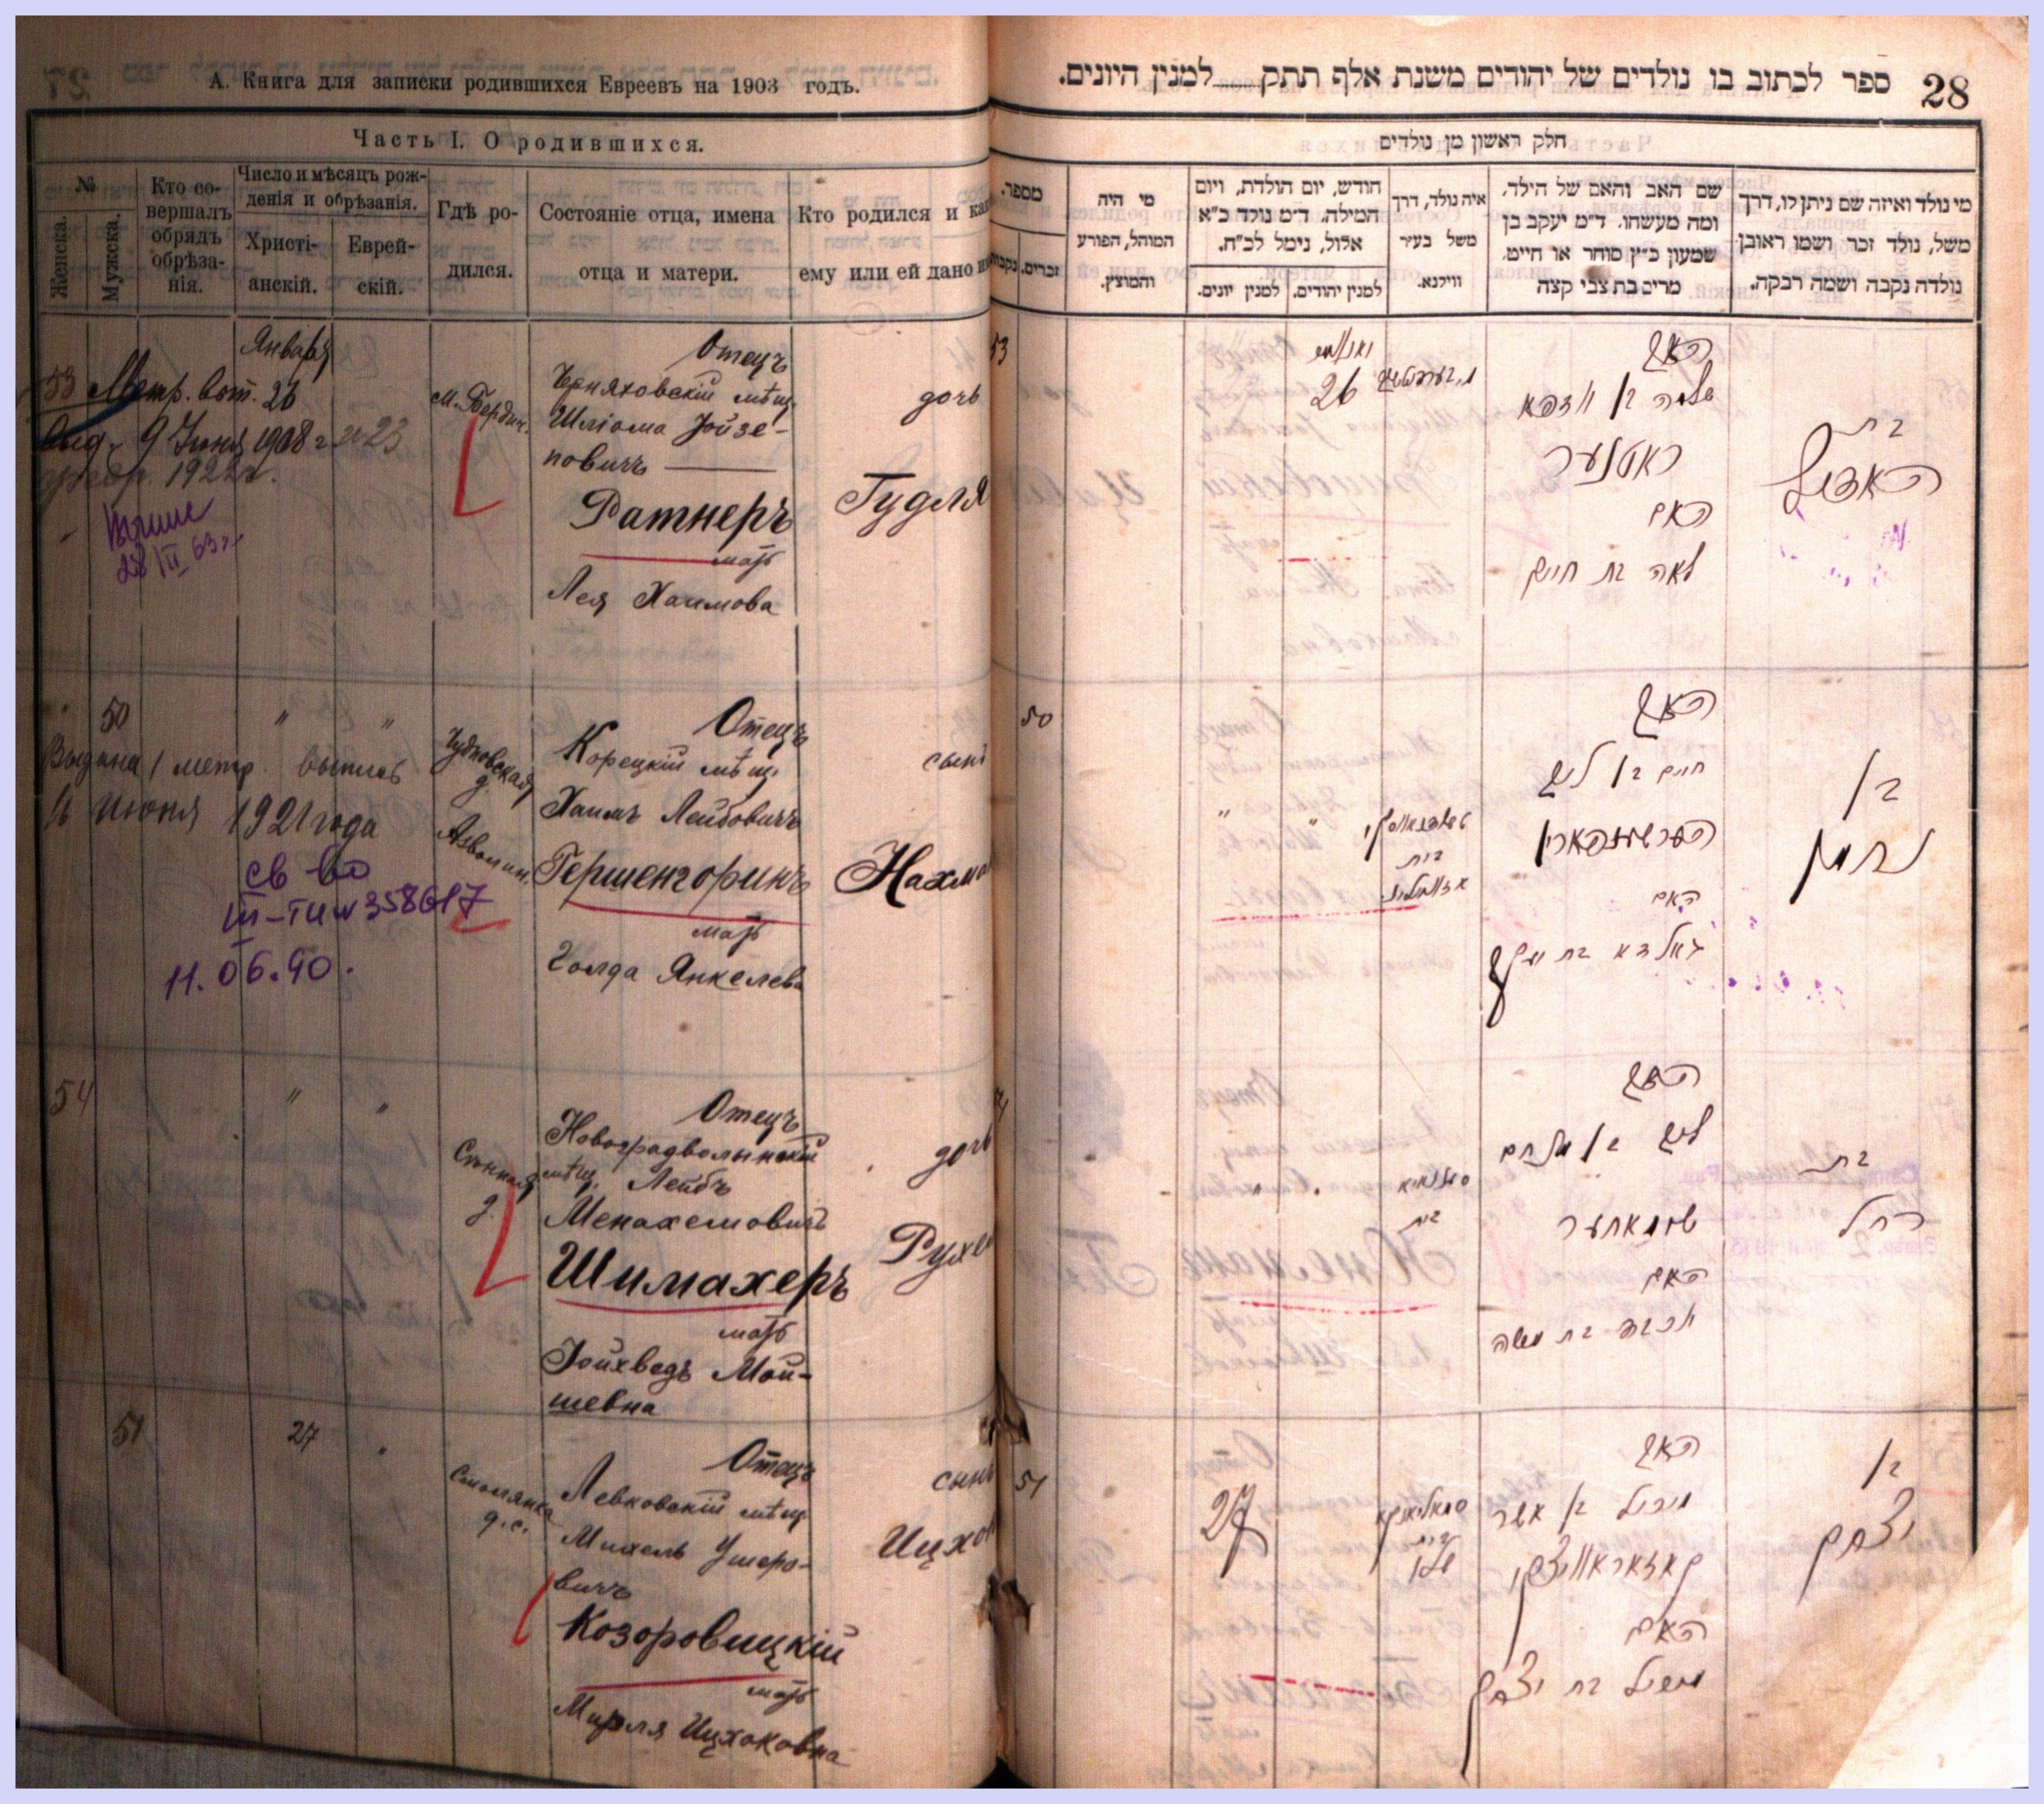 А. Книга для записки родившихся Евреевъ на 1903 годъ.
Часть I. О родившихся.
№
Женска.
Мужска.
Кто со-
вершалъ
обрядъ
обрѣза-
нія.
Число и мѣсяцъ рож-
денія и обрѣзанія.
Христі-
анскій.
Еврей-
скій.
Гдѣ ро-
дился.
Состояніе отца, имена
отца и матери.
Кто родился и как
ему или ей дано и
Января
53 Метр. вып. 26
выд. 9 Іюня 1908 г.
февр. 1922 г.
28/II 63 г.
м. Бердич.
Отецъ
Черняховскій мѣщ.
Шліома Іойзе-
повичъ
Ратнеръ
мать
Лея Хаимова
дочь
Гудля
50 " "
Выдана 1 метр. выпись
16 июня 1921 года
св во
III-ТИ № 358617
11.06.90.
Чудновская
д.
Отецъ
Корецкій мѣщ.
Хаимъ Лейбовичъ
Гершенгоринъ
мать
Голда Янкелева
сынъ
Нахма
54 " "
Сѣнная
д.
Отецъ
Новоградволынскій
мѣщ. Лейбъ
Менахемовичъ
Шимахеръ
мать
Іойхведъ Мой-
шевна
дочь
Рухе
51 27 "
Смолянка
д. с.
Отецъ
Левковскій мѣщ.
Михель Ушеро-
вичъ
Козоровицкій
мать
Мирля Ицхоковна
сынъ
Ицхок
ספר לכתוב בו נולדים של יהודים משנת אלף תתק למנין היונים. 28
חלק ראשון מן נולדים
מי נולד ואיזה שם ניתן לו, דרך
משל, נולד זכר ושמו ראובן
נולדה נקבה ושמה רבקה.
שם האב והאם של הילד.
ומה מעשהו. ד״מ יעקב בן
שמעון כ״ץ סוחר או חייט.
מרים בת צבי קצה
איה נולד, דרך
משל בעיר
ווילנא.
חודש, יום הולדת, ויום
המילה. ד״מ נולד כ״א
אלול, נימל לכ״ח.
למנין יהודים.
למנין יונים.
מי היה
המוהל, הפורע
והמוצץ.
מספר.
זכרים.
נקבות
53
26
האב
שלמה בן יוזפא
ראטנער
האם
לאה בת חיים
בת
האדיל
50
" "
בית
האב
חיים בן ליב
הערשענהארין
האם
גאלדא בת יעקב
בן
נחמן
54
בית
האב
ליב בן מנחם
שימאחער
האם
יוכבד בת משה
בת
רחל
51
27
סמאליאנקא
בית
האב
מיכל בן אשר
קאזאראוויצקי
האם
בת יצחק
בן
יצחק